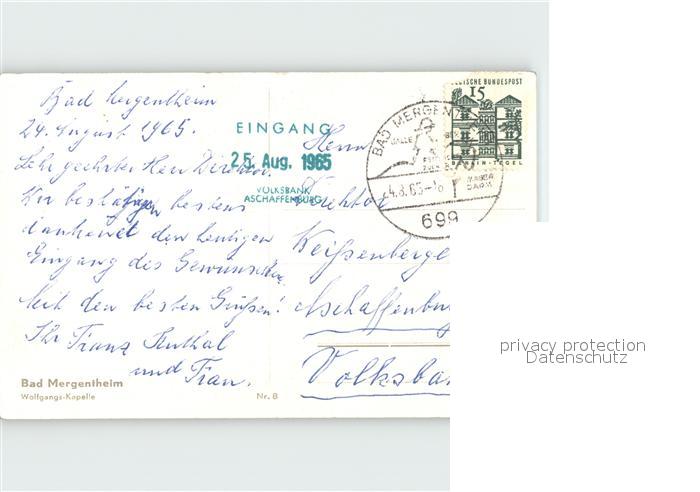 Bad Mergentheim
24. August 1965.
Sehr geehrter Herr Direktor.
Wir bestätigen bestens
dankend den heutigen
Eingang des Gewünschten
Mit den besten Grüßen!
Ihr Franz
und Frau.
Bad Mergentheim
Wolfgangs-Kapelle
Nr. 8
EINGANG
25. Aug. 1965
VOLKSBANK
ASCHAFFENBURG
Herrn
Direktor
Weißenberge
Aschaffenbu
Volksba
DEUTSCHE BUNDESPOST
15
BERLIN-TEGEL
BAD MERGENT
4.8.65-18
699
privacy protection
Datenschutz